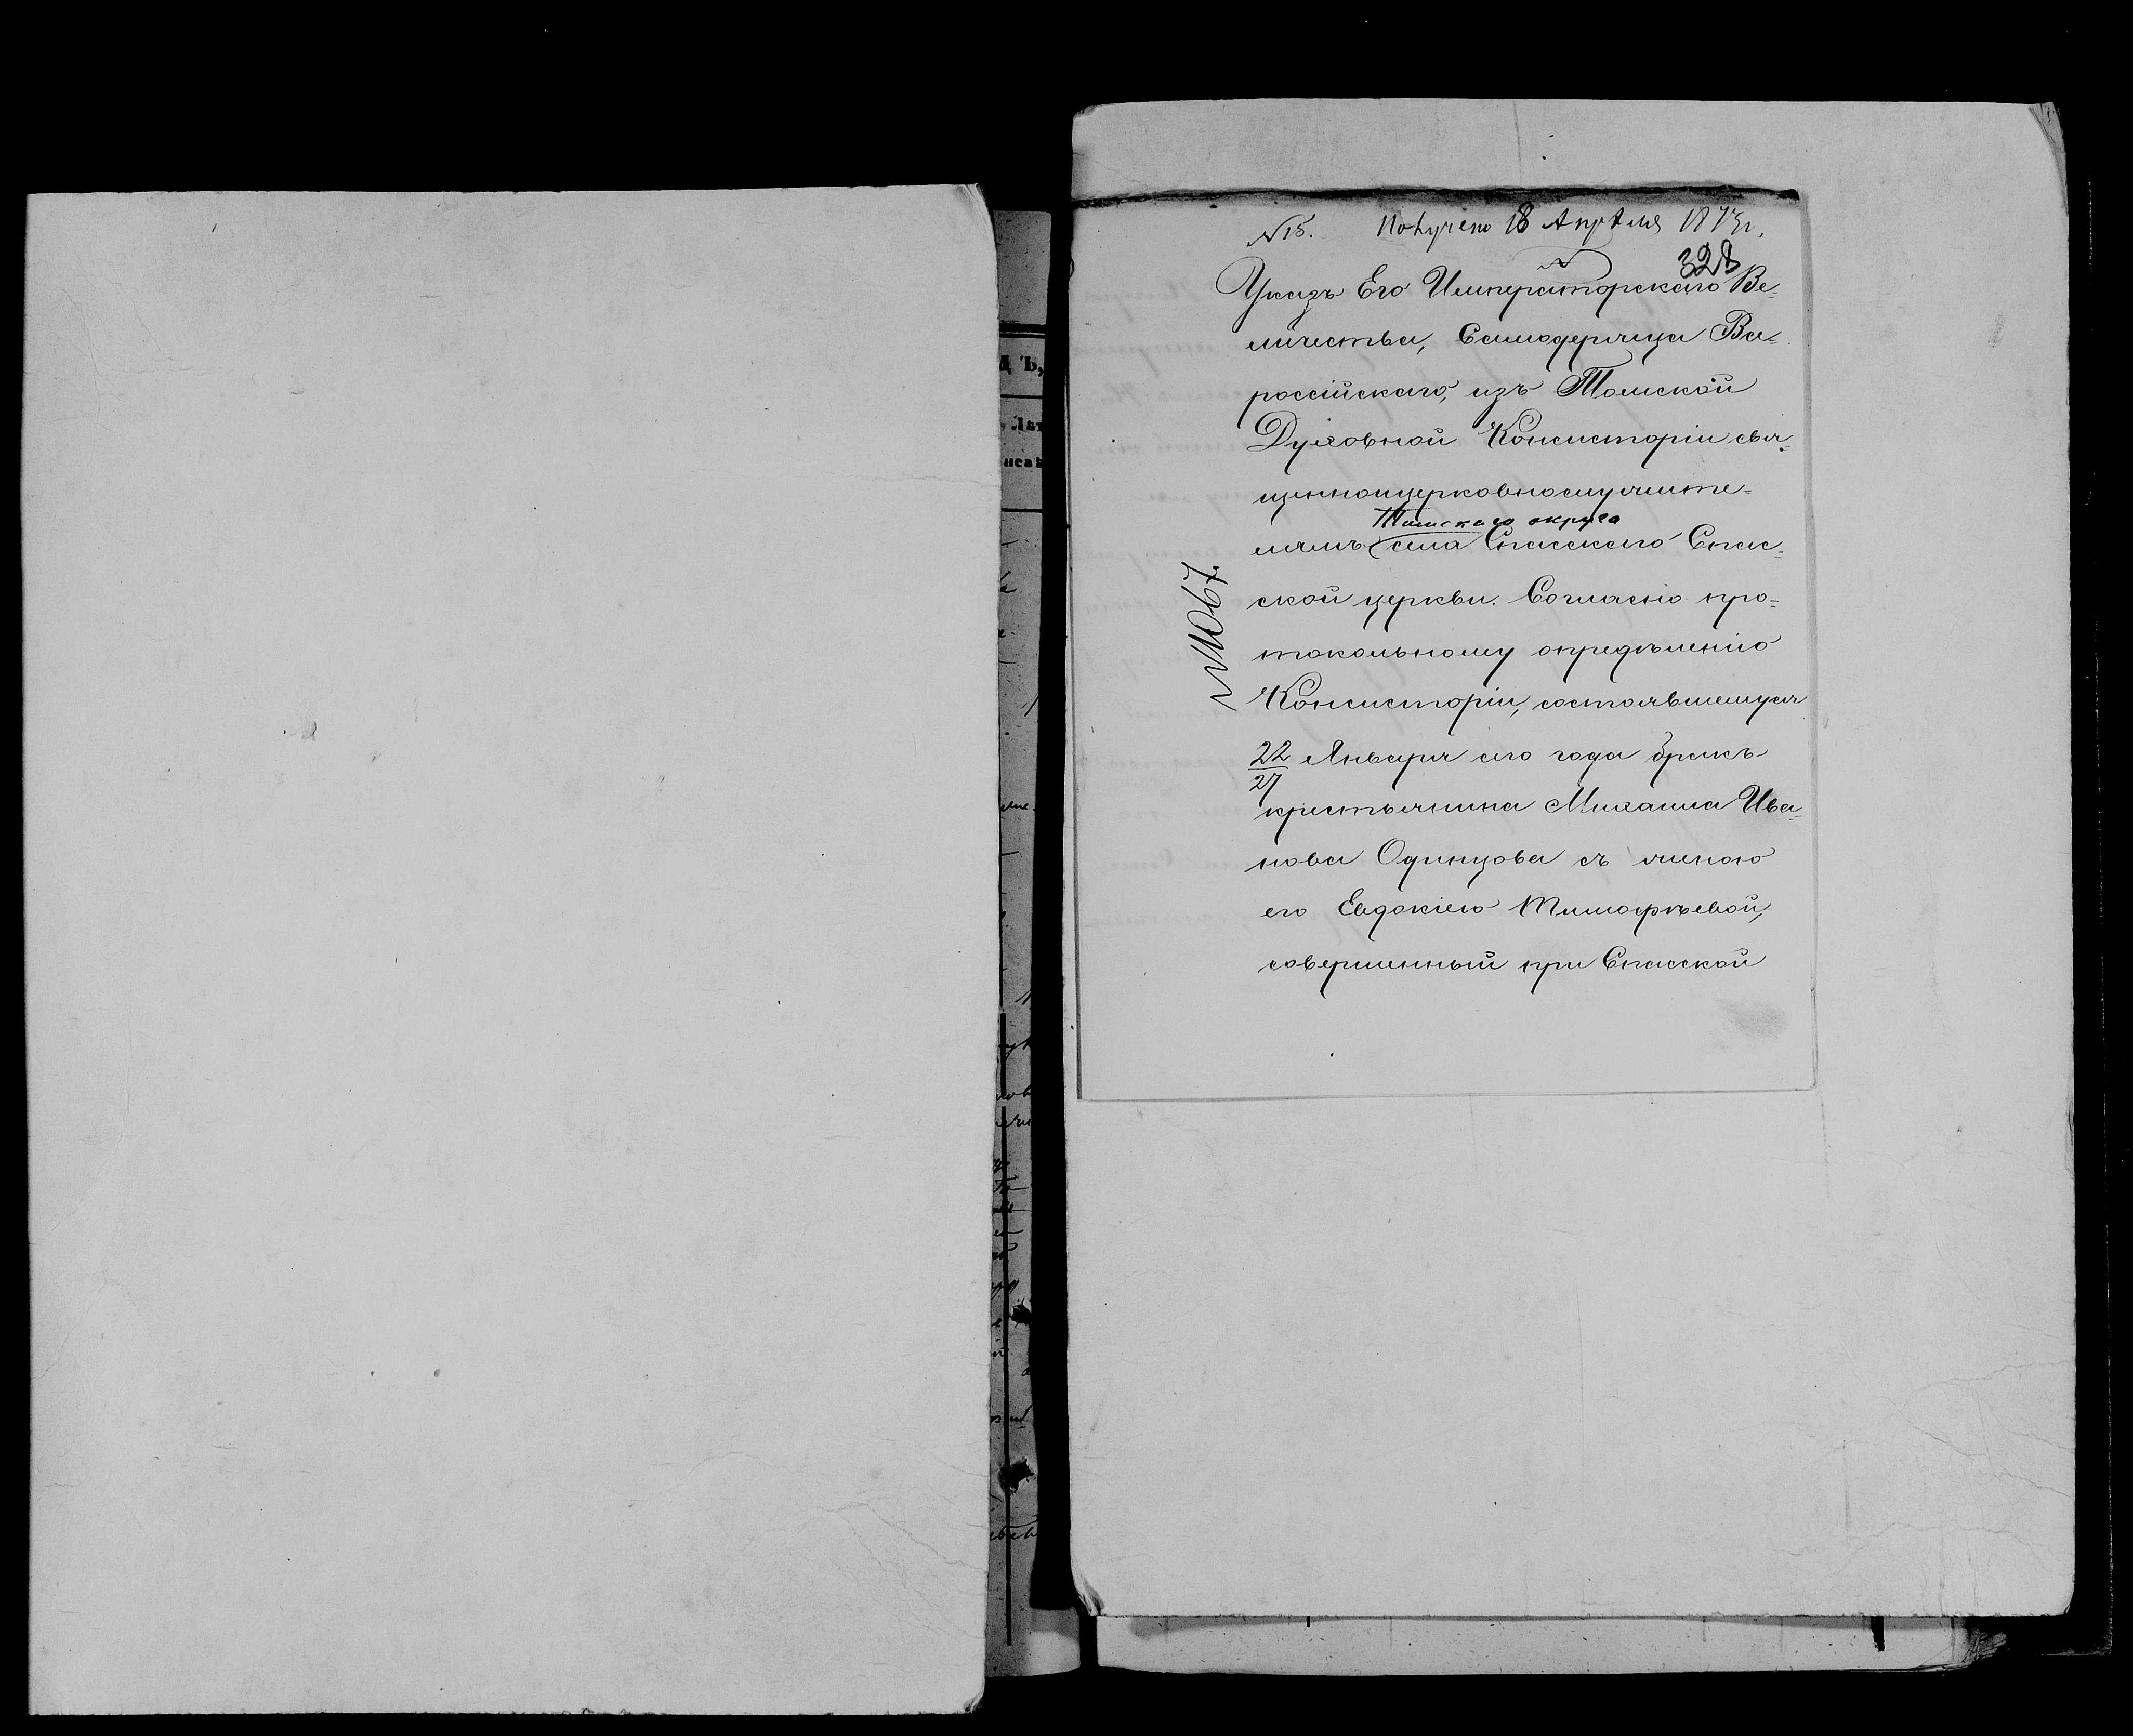 № 15. Получено 18 Апрѣля 1873 г.
328
Указъ Его Императорскаго Ве-
личества, Самодержца Все-
россійскаго, изъ Томской
Духовной Консисторіи свя-
щенноцерковнослужите-
Томскаго округа
лямъ села Спасскаго Спас-
ской церкви. Согласно про-
токольному опредѣленію
Консисторіи, состоявшемуся
22/27 Января сего года бракъ
крестьянина Михаила Ива-
нова Одинцова съ женою
его Евдокіею Тимофѣевой,
совершенный при Спасской
№ 1067.